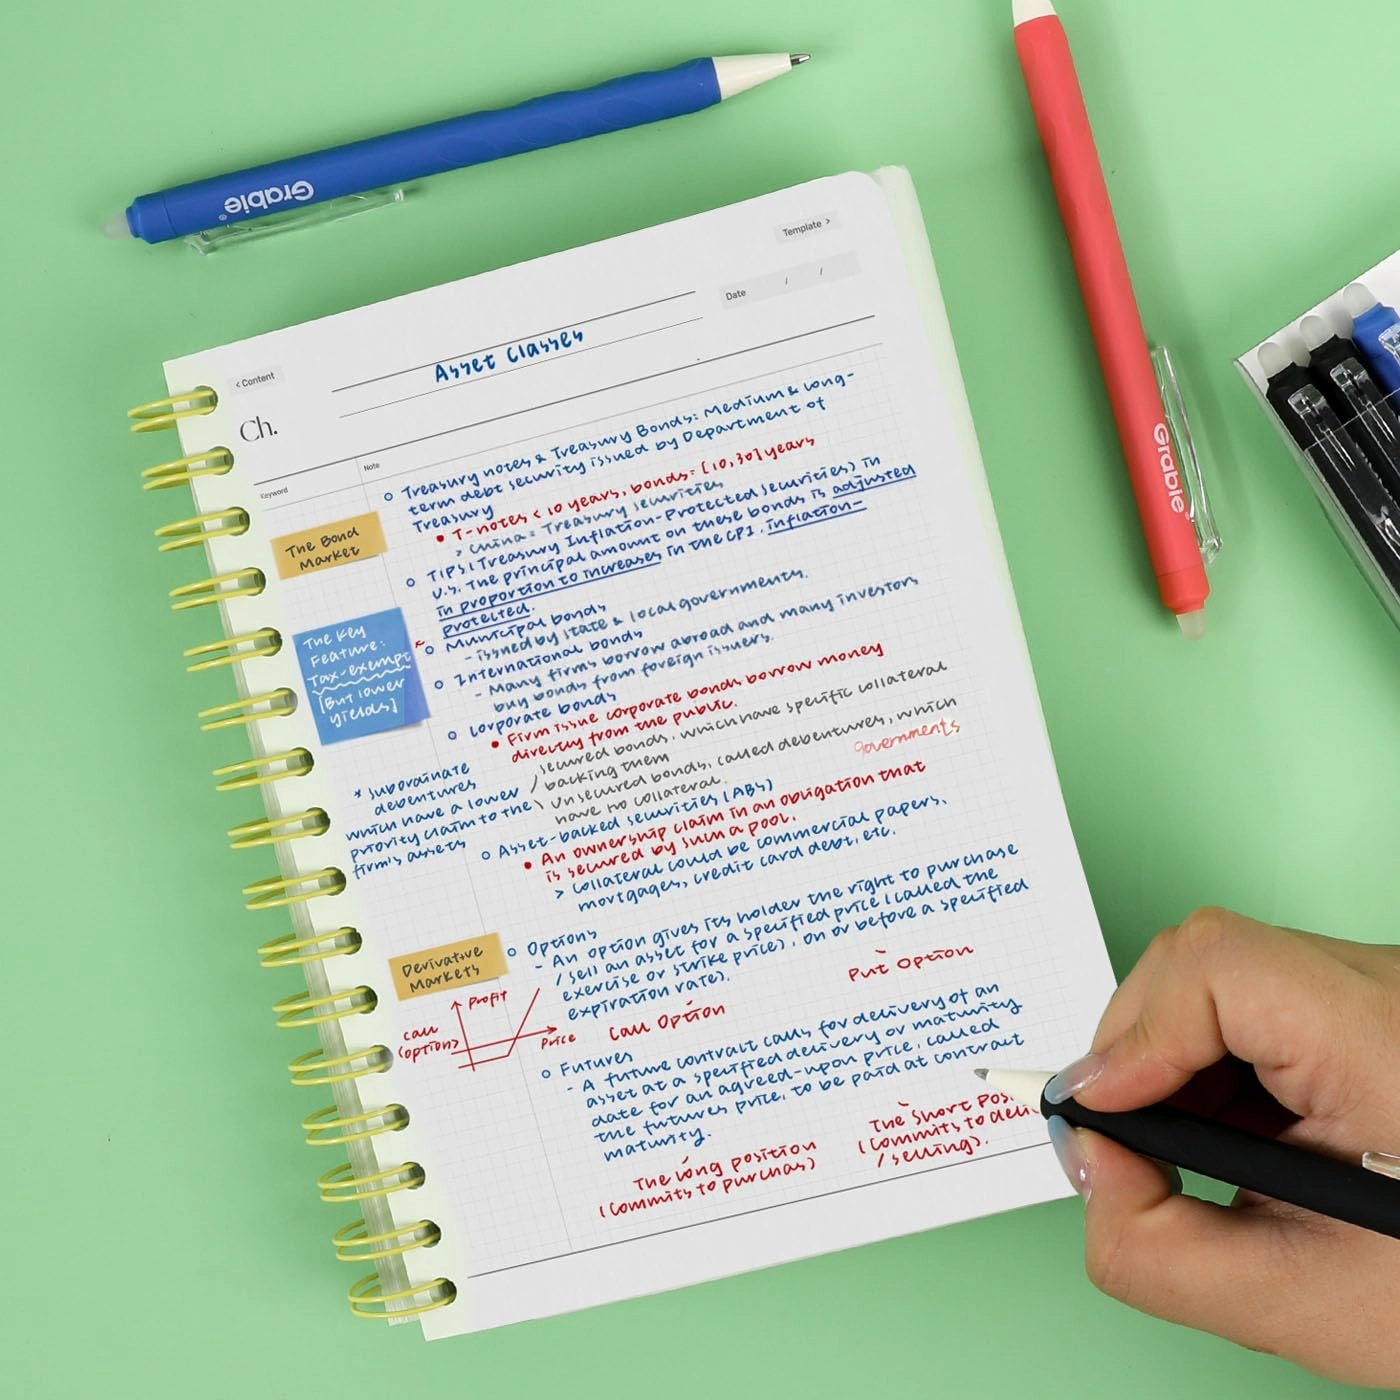 Grabie
Grabie
Template >
Date / /
< Content
Asset Classes
Ch.
Keyword
Note
The Bond
Market
Treasury notes & Treasury Bonds: Medium & long-
term debt security issued by Department of
Treasury
T-notes < 10 years, bonds = [10,30] years
> China = Treasury securities
TIPS (Treasury Inflation-Protected Securities) in
U.S. The principal amount on these bonds is adjusted
in proportion to increases in the CPI. inflation-
protected.
The Key
Feature:
Tax-exempt
[But lower
yields]
* Municipal bonds
- issued by state & local governments.
International bonds
- Many firms borrow abroad and many investors
buy bonds from foreign issuers.
Corporate bonds
Firm issue corporate bonds borrow money
directly from the public.
secured bonds, which have specific collateral
/ backing them
\ Unsecured bonds, called debentures, which
have no collateral.
governments
* subordinate
debentures
which have a lower
priority claim to the
firm's assets
Asset-backed securities (ABS)
An ownership claim in an obligation that
is secured by such a pool.
> Collateral could be commercial papers,
mortgages, credit card debt, etc.
Derivative
Markets
Options
- An option gives its holder the right to purchase
/ sell an asset for a specified price (called the
exercise or strike price), on or before a specified
expiration rate).
Call Option
Put Option
Profit
Call
(option)
Price
Futures
- A future contract calls for delivery of an
asset at a specified delivery or maturity
date for an agreed-upon price, called
the futures price, to be paid at contract
maturity.
The long position
(commits to purchas)
The short
(commits to
/ selling).